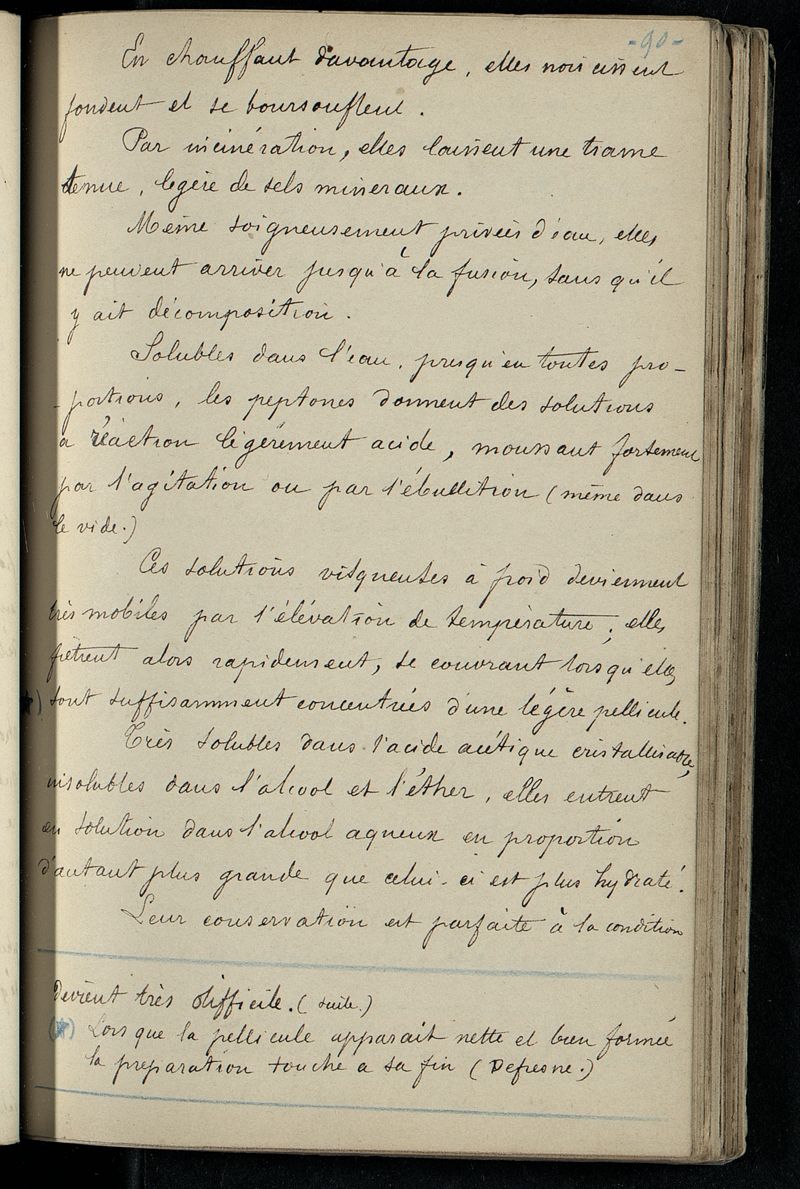 -90-
En chauffant davantage, elles noircissent
fondent et se boursouflent.
Par incinération, elles laissent une trame
tenue, légère de sels mineraux.
Meme soigneusement privées d'eau, elles
ne peuvent arriver jusqu'à la fusion, sans qu'il
y ait décomposition.
Solubles dans l'eau, presqu'en toutes pro-
-portions, les peptones donnent des solutions
a réaction légèrement acide, moussant fortement
par l'agitation ou par l'ébullition (même dans
le vide.)
Ces solutions visqueuses à froid deviennent
très mobiles par l'élévation de température; elles
filtrent alors rapidement, se couvrant lorsqu'elles
*) sont suffisamment concentrées d'une légère pellicule.
Très solubles dans l'acide acétique cristallisable,
insolubles dans l'alcool et l'éther, elles entrent
en solution dans l'alcool aqueux en proportion
d'autant plus grande que celui-ci est plus hydraté.
Leur conservation est parfaite à la condition
devient très difficile. (suite.)
(*) Lorsque la pellicule apparait nette et bien formée
la preparation touche a sa fin (Defresne.)